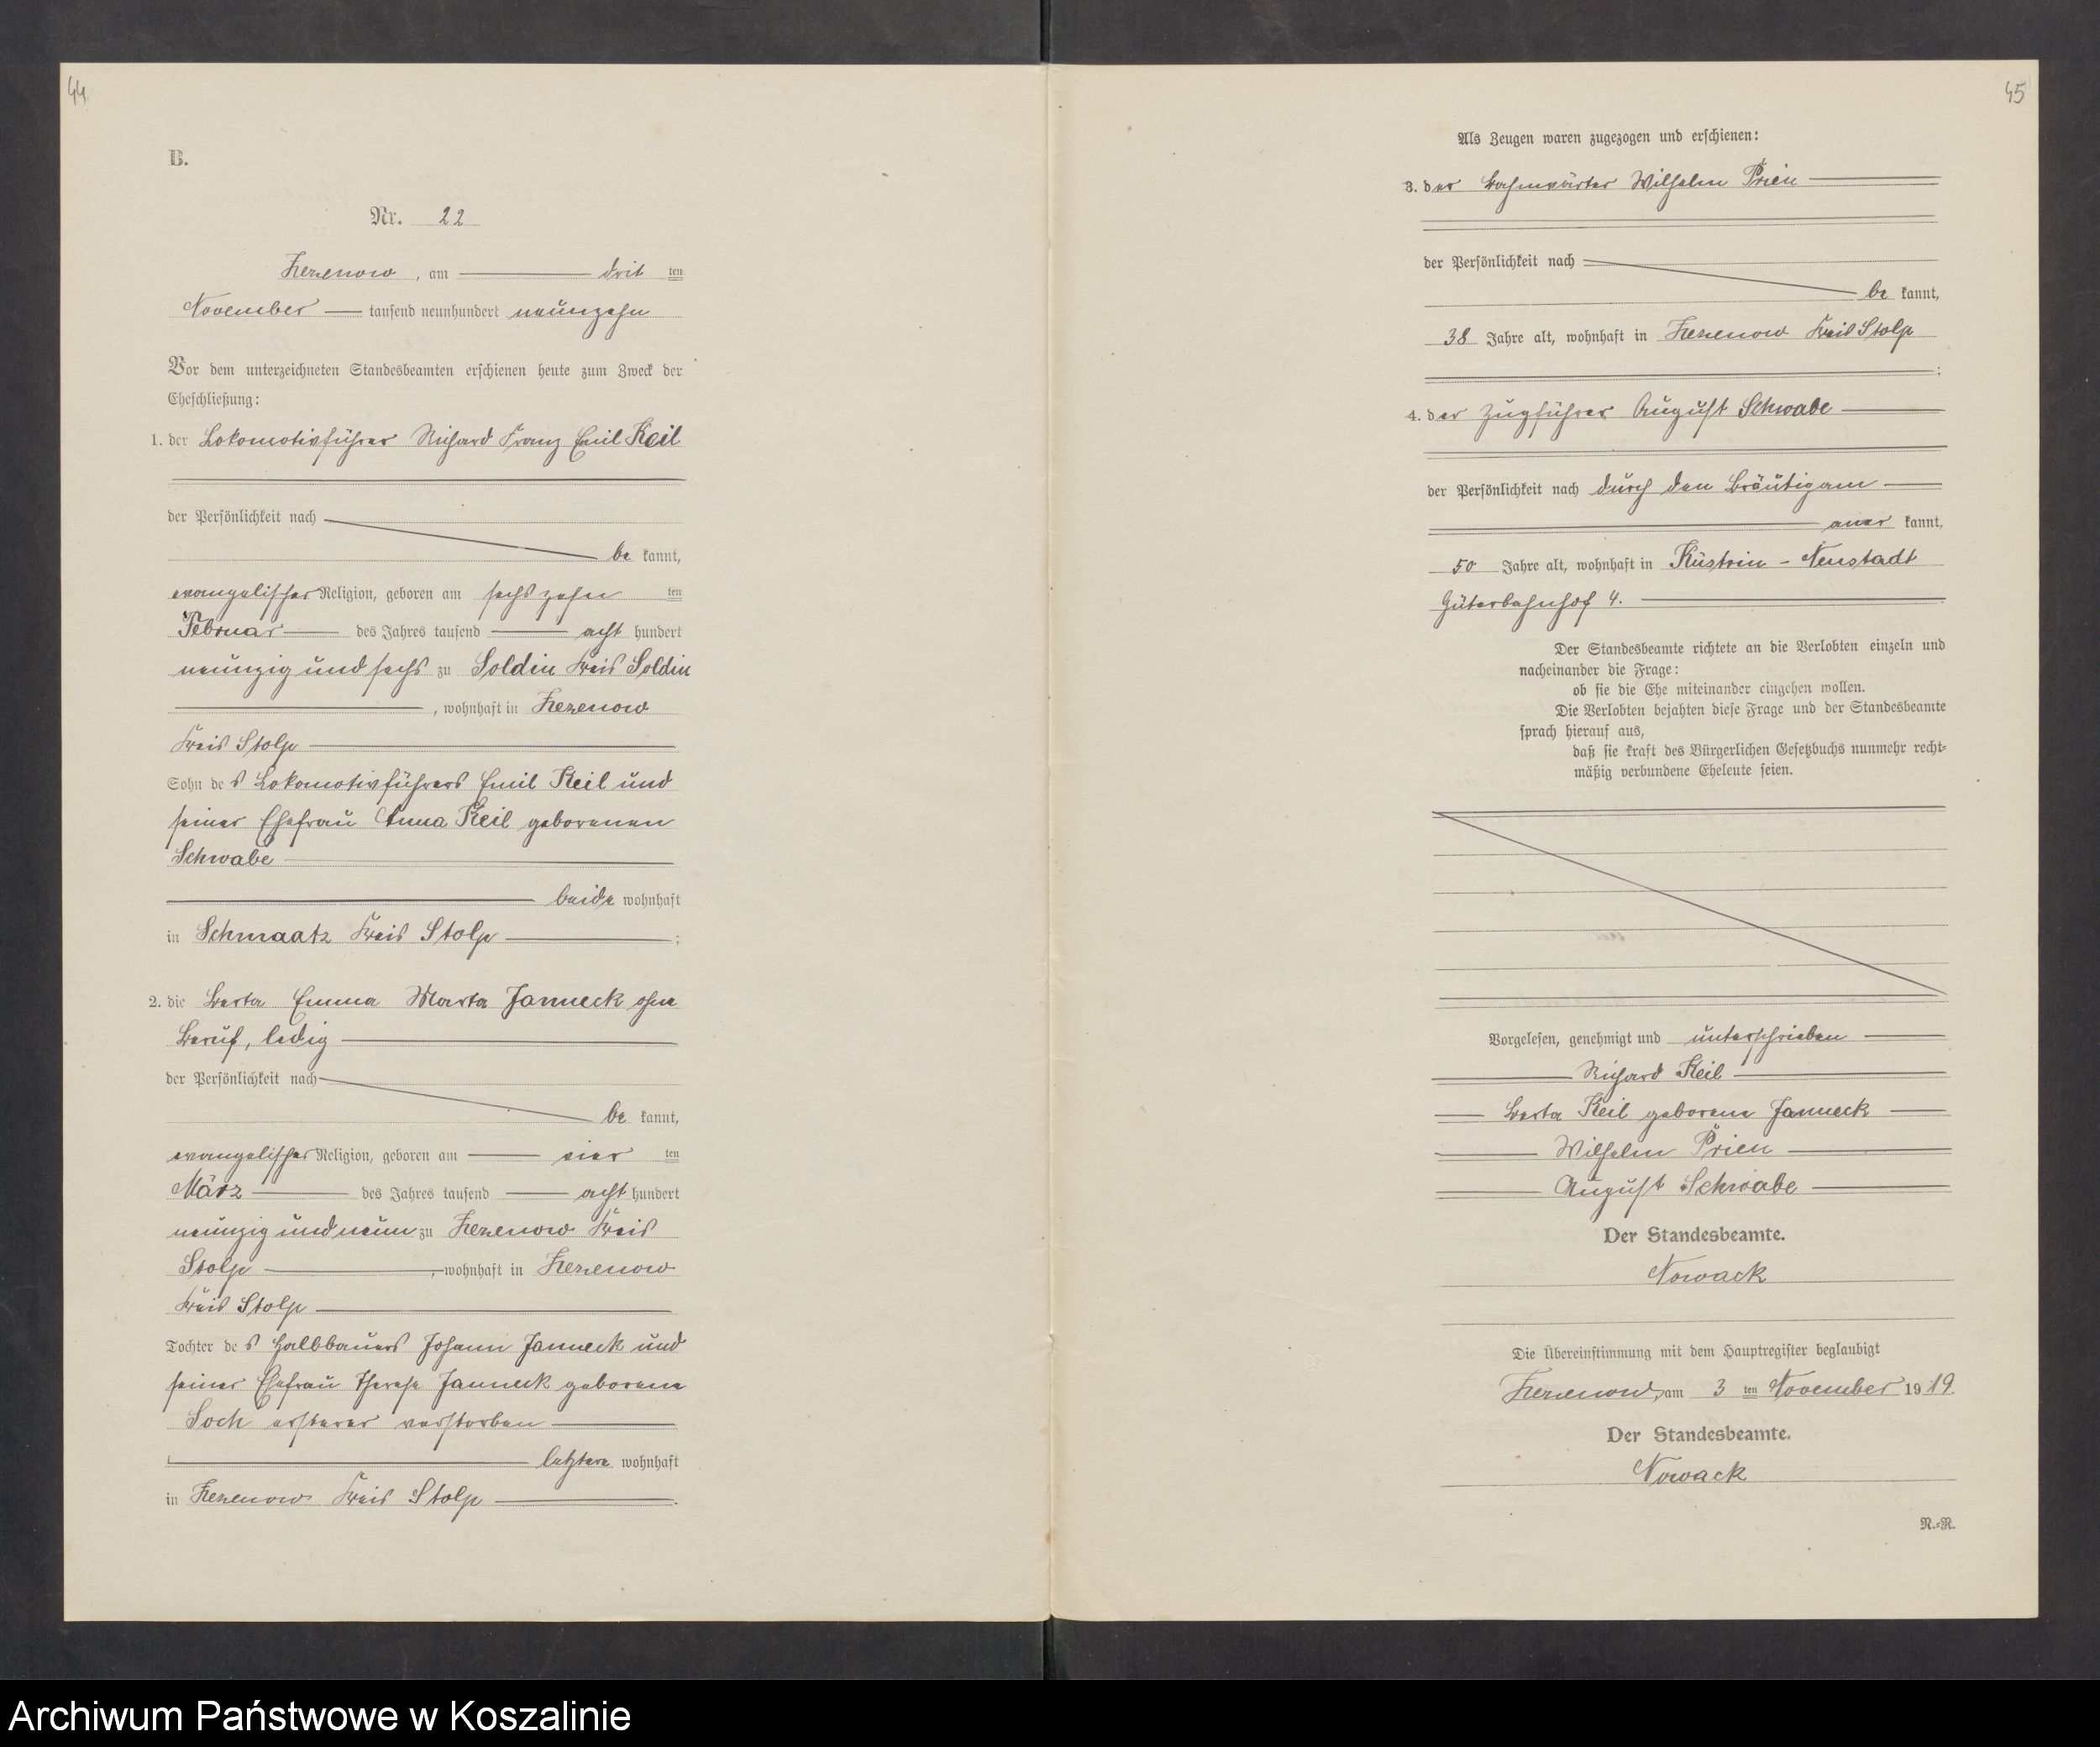 44
B.
Nr. 22
Zezenow, am dritten
November tausend neunhundert neunzehn
Vor dem unterzeichneten Standesbeamten erschienen heute zum Zweck der
Eheschließung:
1. der Lokomotivführer Richard Franz Emil Keil
der Persönlichkeit nach
bekannt,
evangelischer Religion, geboren am sechszehnten
Februar des Jahres tausend acht hundert
neunzig und sechs zu Soldin Kreis Soldin
, wohnhaft in Zezenow
Kreis Stolp
Sohn des Lokomotivführers Emil Keil und
seiner Ehefrau Anna Keil geborenen
Schwabe
beide wohnhaft
in Schmaatz Kreis Stolp ;
2. die Berta Emma Marta Janneck ohne
Beruf, ledig
der Persönlichkeit nach
bekannt,
evangelischer Religion, geboren am vierten
März des Jahres tausend acht hundert
neunzig und neun zu Zezenow Kreis
Stolp , wohnhaft in Zezenow
Kreis Stolp
Tochter des Halbbauers Johann Janneck und
seiner Ehefrau Therese Janneck geborene
Soch ersterer verstorben
letztere wohnhaft
in Zezenow Kreis Stolp .
45
Als Zeugen waren zugezogen und erschienen:
3. der Bahnwärter Wilhelm Prien
der Persönlichkeit nach
bekannt,
38 Jahre alt, wohnhaft in Zezenow Kreis Stolp
;
4. der Zugführer August Schwabe
der Persönlichkeit nach durch den Bräutigam
anerkannt,
50 Jahre alt, wohnhaft in Küstrin - Neustadt
Güterbahnhof 4.
Der Standesbeamte richtete an die Verlobten einzeln und
nacheinander die Frage:
ob sie die Ehe miteinander eingehen wollen.
Die Verlobten bejahten diese Frage und der Standesbeamte
sprach hierauf aus,
daß sie kraft des Bürgerlichen Gesetzbuchs nunmehr recht-
mäßig verbundene Eheleute seien.
Vorgelesen, genehmigt und unterschrieben
Richard Keil
Berta Keil geborene Janneck
Wilhelm Prien
August Schwabe
Der Standesbeamte.
Nowack
Die Übereinstimmung mit dem Hauptregister beglaubigt
Zezenow, am 3ten November 1919.
Der Standesbeamte.
Nowack
N.-R.
Archiwum Państwowe w Koszalinie